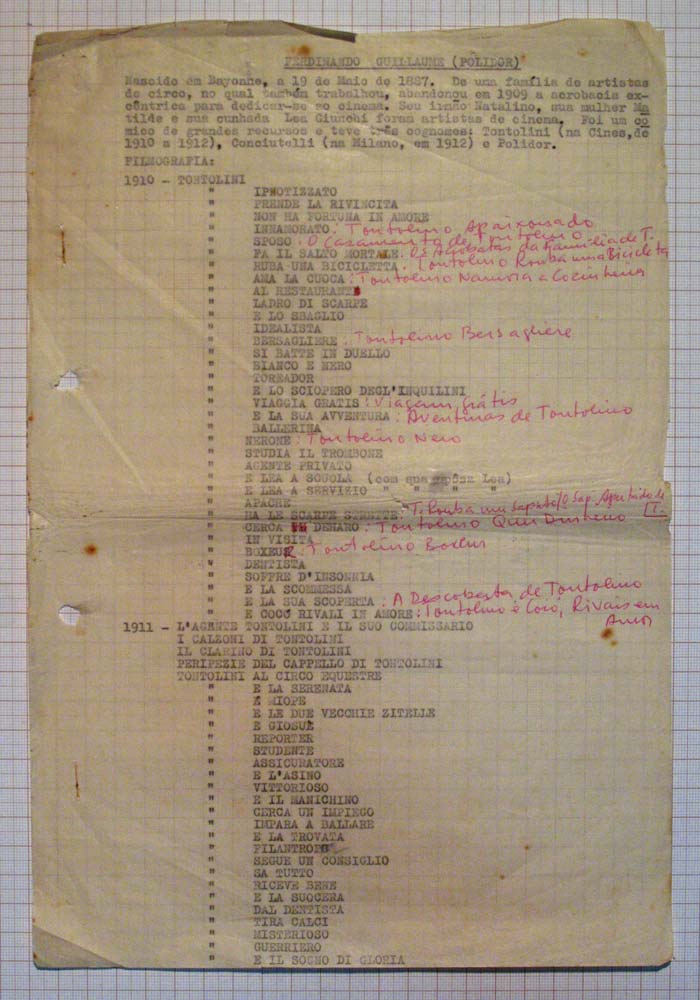 FERDINANDO GUILLAUME (POLIDOR)
Nascido em Bayonne, a 19 de Maio de 1887. De uma família de artistas
de circo, no qual também trabalhou, abandonou em 1909 a acrobacia ex-
cêntrica para dedicar-se ao cinema. Seu irmão Natalino, sua mulher Ma
tilde e sua cunhada Lea Giunchi foram artistas de cinema. Foi um cô
mico de grandes recursos e teve três cognomes: Tontolini (na Cines, de
1910 a 1912), Conciutelli (na Milano, em 1912) e Polidor.
FILMOGRAFIA:
1910 - TONTOLINI
" IPNOTIZZATO
" PRENDE LA RIVINCITA
" NON HA FORTUNA IN AMORE
" INNAMORATO : Tontolino Apaixonado
" SPOSO : O Casamento de Tontolino
" FA IL SALTO MORTALE : Os Acrobatas da Família de T.
" RUBA UNA BICICLETTA : Tontolino Rouba uma Bicicleta
" AMA LA CUOCA : Tontolino Namora a Cozinheira
" AL RESTAURANT
" LADRO DI SCARPE
" E LO SBAGLIO
" IDEALISTA
" BERSAGLIERE : Tontolino Bersagliere
" SI BATTE IN DUELLO
" BIANCO E NERO
" TOREADOR
" E LO SCIOPERO DEGL'INQUILINI
" VIAGGIA GRATIS : Viagem grátis
" E LA SUA AVVENTURA : Aventuras de Tontolino
" BALLERINA
" NERONE : Tontolino Nero
" STUDIA IL TROMBONE
" AGENTE PRIVATO
" E LEA A SCUOLA (com sua espôsa Lea)
" E LEA A SERVIZIO " " " "
" APACHE
" HA LE SCARPE STRETTE : T. Rouba um Sapato/O Sap. Apertado de T.
" CERCA DENARO : Tontolino Quer Dinheiro
" IN VISITA
" BOXEUR : Tontolino Boxeur
" DENTISTA
" SOFFRE D'INSONNIA
" E LA SCOMMESSA
" E LA SUA SCOPERTA : A Descoberta de Tontolino
" E COCÒ RIVALI IN AMORE : Tontolino e Cocó, Rivais em
Amor
1911 - L'AGENTE TONTOLINI E IL SUO COMMISSARIO
I CALZONI DI TONTOLINI
IL CLARINO DI TONTOLINI
PERIPEZIE DEL CAPPELLO DI TONTOLINI
TONTOLINI AL CIRCO EQUESTRE
" E LA SERENATA
" È MIOPE
" E LE DUE VECCHIE ZITELLE
" E GIOSUÈ
" REPORTER
" STUDENTE
" ASSICURATORE
" E L'ASINO
" VITTORIOSO
" E IL MANICHINO
" CERCA UN IMPIEGO
" IMPARA A BALLARE
" E LA TROVATA
" FILANTROPO
" SEGUE UN CONSIGLIO
" SA TUTTO
" RICEVE BENE
" E LA SUOCERA
" DAL DENTISTA
" TIRA CALCI
" MISTERIOSO
" GUERRIERO
" E IL SOGNO DI GLORIA